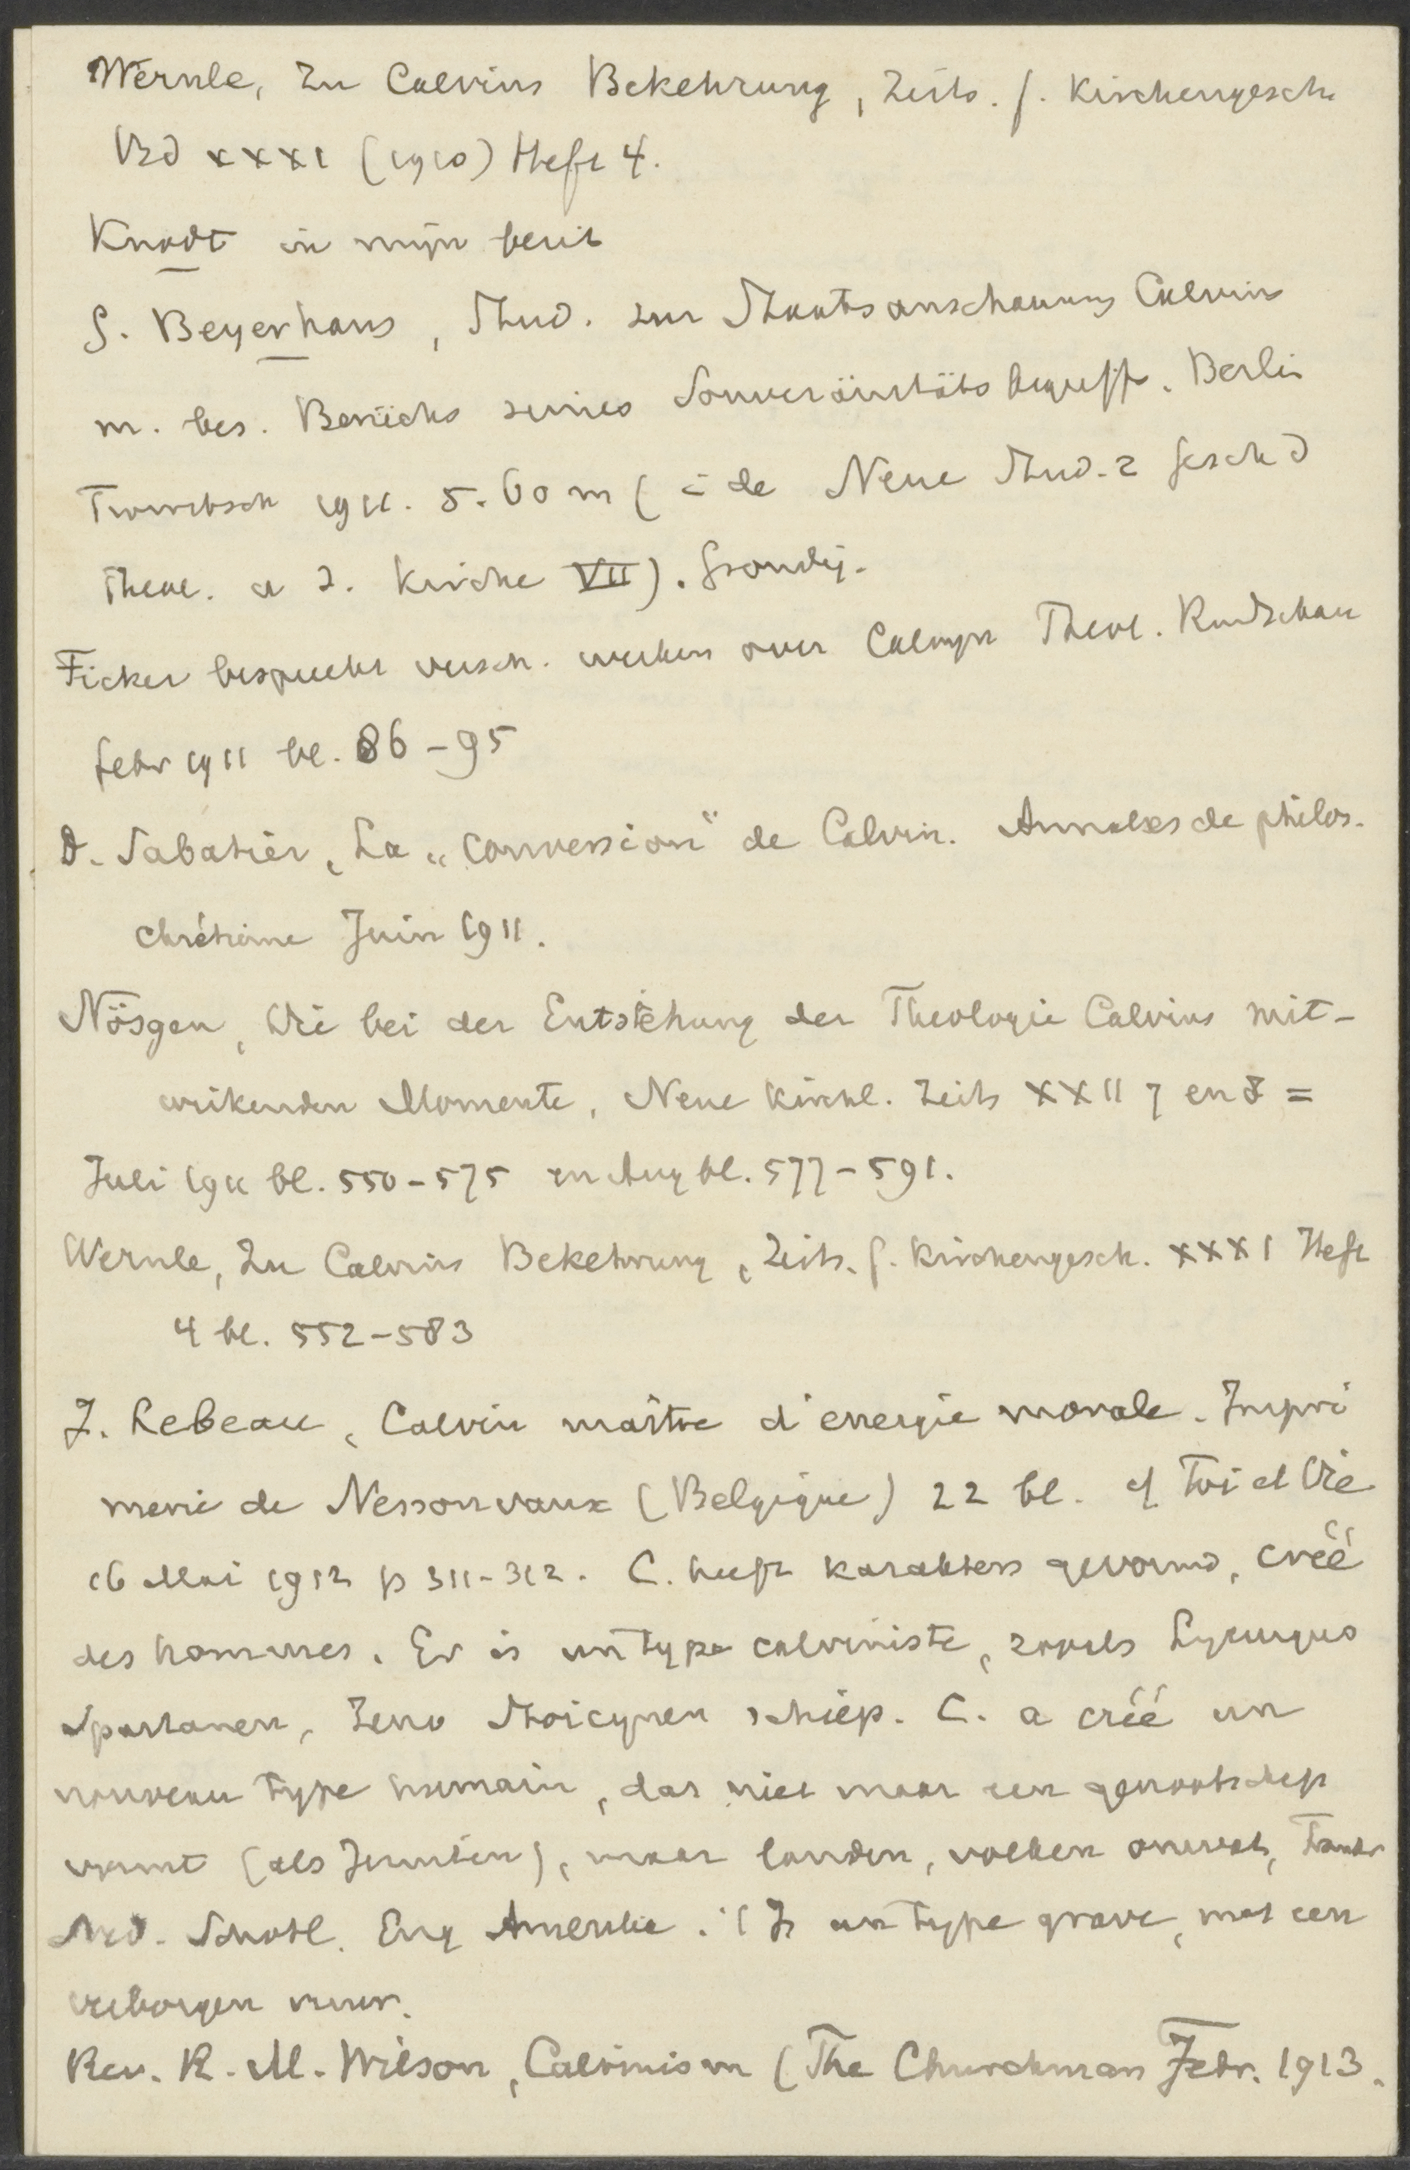 Wernle, Zu Calvins Bekehrung, Zeits. f. Kirchengesch
Bd XXXI (1910) Heft 4.
Knodt in mijn bezit
G. Beyerhaus, Stud. zur Staatsanschauung Calvins
m. bes. Berücks seines Souveränitätsbegriffs. Berlin
Trowitzsch 1911. 5.60 m ( i de Neue Stud. z Gesch d
Theol. u d. Kirche VII). Grondig.
Ficker bespreekt versch. werken over Calvyn Theol. Rundschau
Febr 1911 bl. 86-95
D. Sabatier, La „conversion" de Calvin. Annales de philos.
chrétienne Juin 1911.
Nösgen, Die bei der Entstehung der Theologie Calvins mit-
wirkenden Momente, Neue Kirchl. Zeits XXII 7 en 8 =
Juli 1911 bl. 550-575 en Aug bl. 577-591.
Wernle, Zu Calvins Bekehrung, Zeits. f. Kirchengesch. XXXI Heft
4 bl. 552-583
J. Lebeau, Calvin maître d'energie morale. Impri
merie de Nessonvaux (Belgique) 22 bl. cf Foi et Vie
16 Mai 1912 p 311-312. C. heeft karakters gevormd, créé
des hommes. Er is un type calviniste, zooals Lycurgus
Spartanen, Zeno Stoicynen schiep. C. a créé un
nouveau type humain, dat niet maar een genootschap
vormt (als Jezuiten), maar landen, volken omvat, Frankr
Ned. Schotl. Eng Amerika. 't Is un type grave, met een
verborgen vuur.
Rev. R. M. Wilson, Calvinism (The Churchman Febr. 1913.